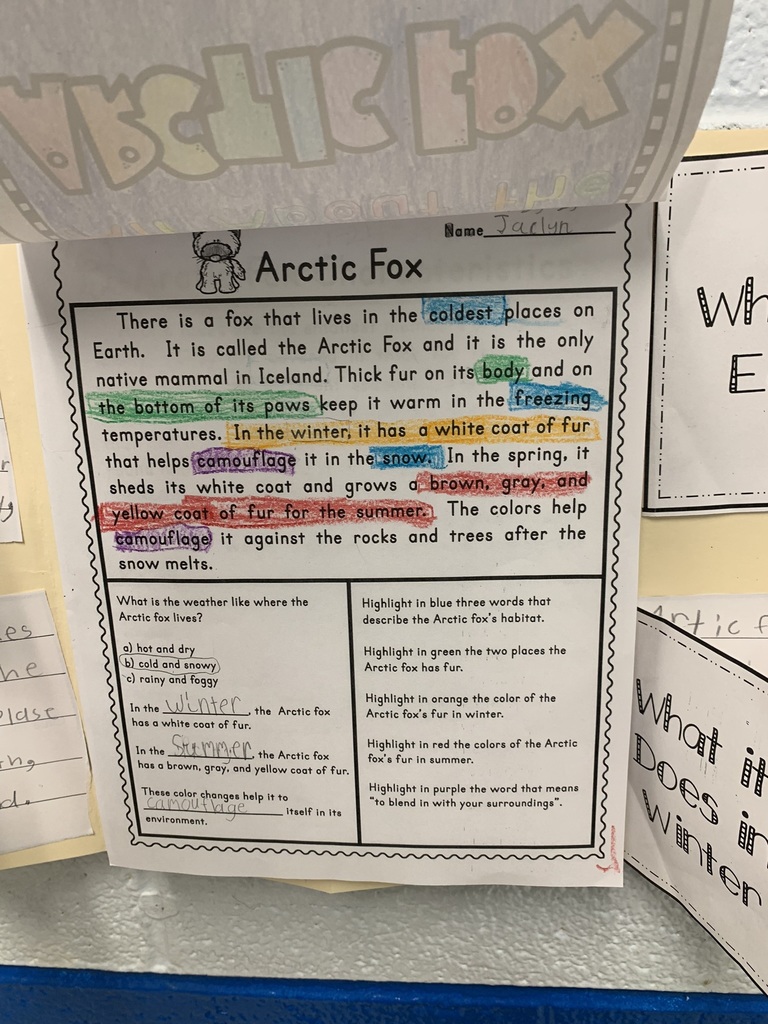 ARCTIC FOX
Name Jaclyn
Arctic Fox
There is a fox that lives in the coldest places on
Earth. It is called the Arctic Fox and it is the only
native mammal in Iceland. Thick fur on its body and on
the bottom of its paws keep it warm in the freezing
temperatures. In the winter, it has a white coat of fur
that helps camouflage it in the snow. In the spring, it
sheds its white coat and grows a brown, gray, and
yellow coat of fur for the summer. The colors help
camouflage it against the rocks and trees after the
snow melts.
What is the weather like where the
Arctic fox lives?
a) hot and dry
b) cold and snowy
c) rainy and foggy
In the winter, the Arctic fox
has a white coat of fur.
In the Summer, the Arctic fox
has a brown, gray, and yellow coat of fur.
These color changes help it to
camouflage itself in its
environment.
Highlight in blue three words that
describe the Arctic fox's habitat.
Highlight in green the two places the
Arctic fox has fur.
Highlight in orange the color of the
Arctic fox's fur in winter.
Highlight in red the colors of the Arctic
fox's fur in summer.
Highlight in purple the word that means
"to blend in with your surroundings".
Wh
E
Artic f
What it
Does in
Winter
es
he
d.